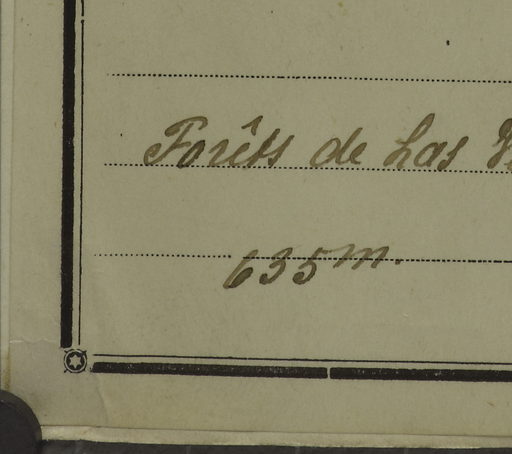 Forêts de Las
635 m.